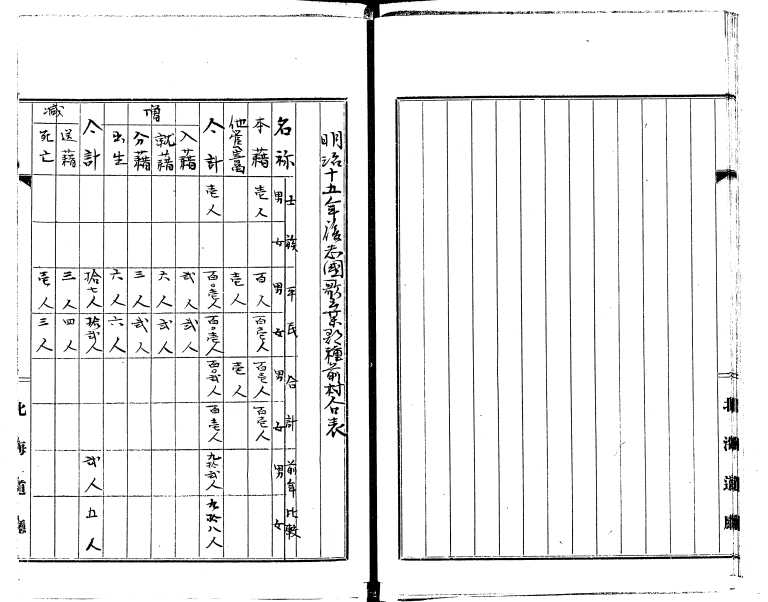 明治十五年後志國歌棄郡種前村戸表
名称 士族 男 女 平民 男 女 合計 男 女 前年比較 男 女
本籍 壱人 百人 百壱人 百壱人 百壱人
他管寄寓 壱人 壱人
合計 壱人 百〇壱人 百〇壱人 百〇弐人 百壱人 九拾弐人 九拾八人
増
入籍 弐人 弐人
就籍 六人 弐人
分籍 三人 弐人
出生 六人 六人
合計 拾七人 拾弐人 弐人 五人
減
送籍 三人 四人
死亡 壱人 三人
北海道廳